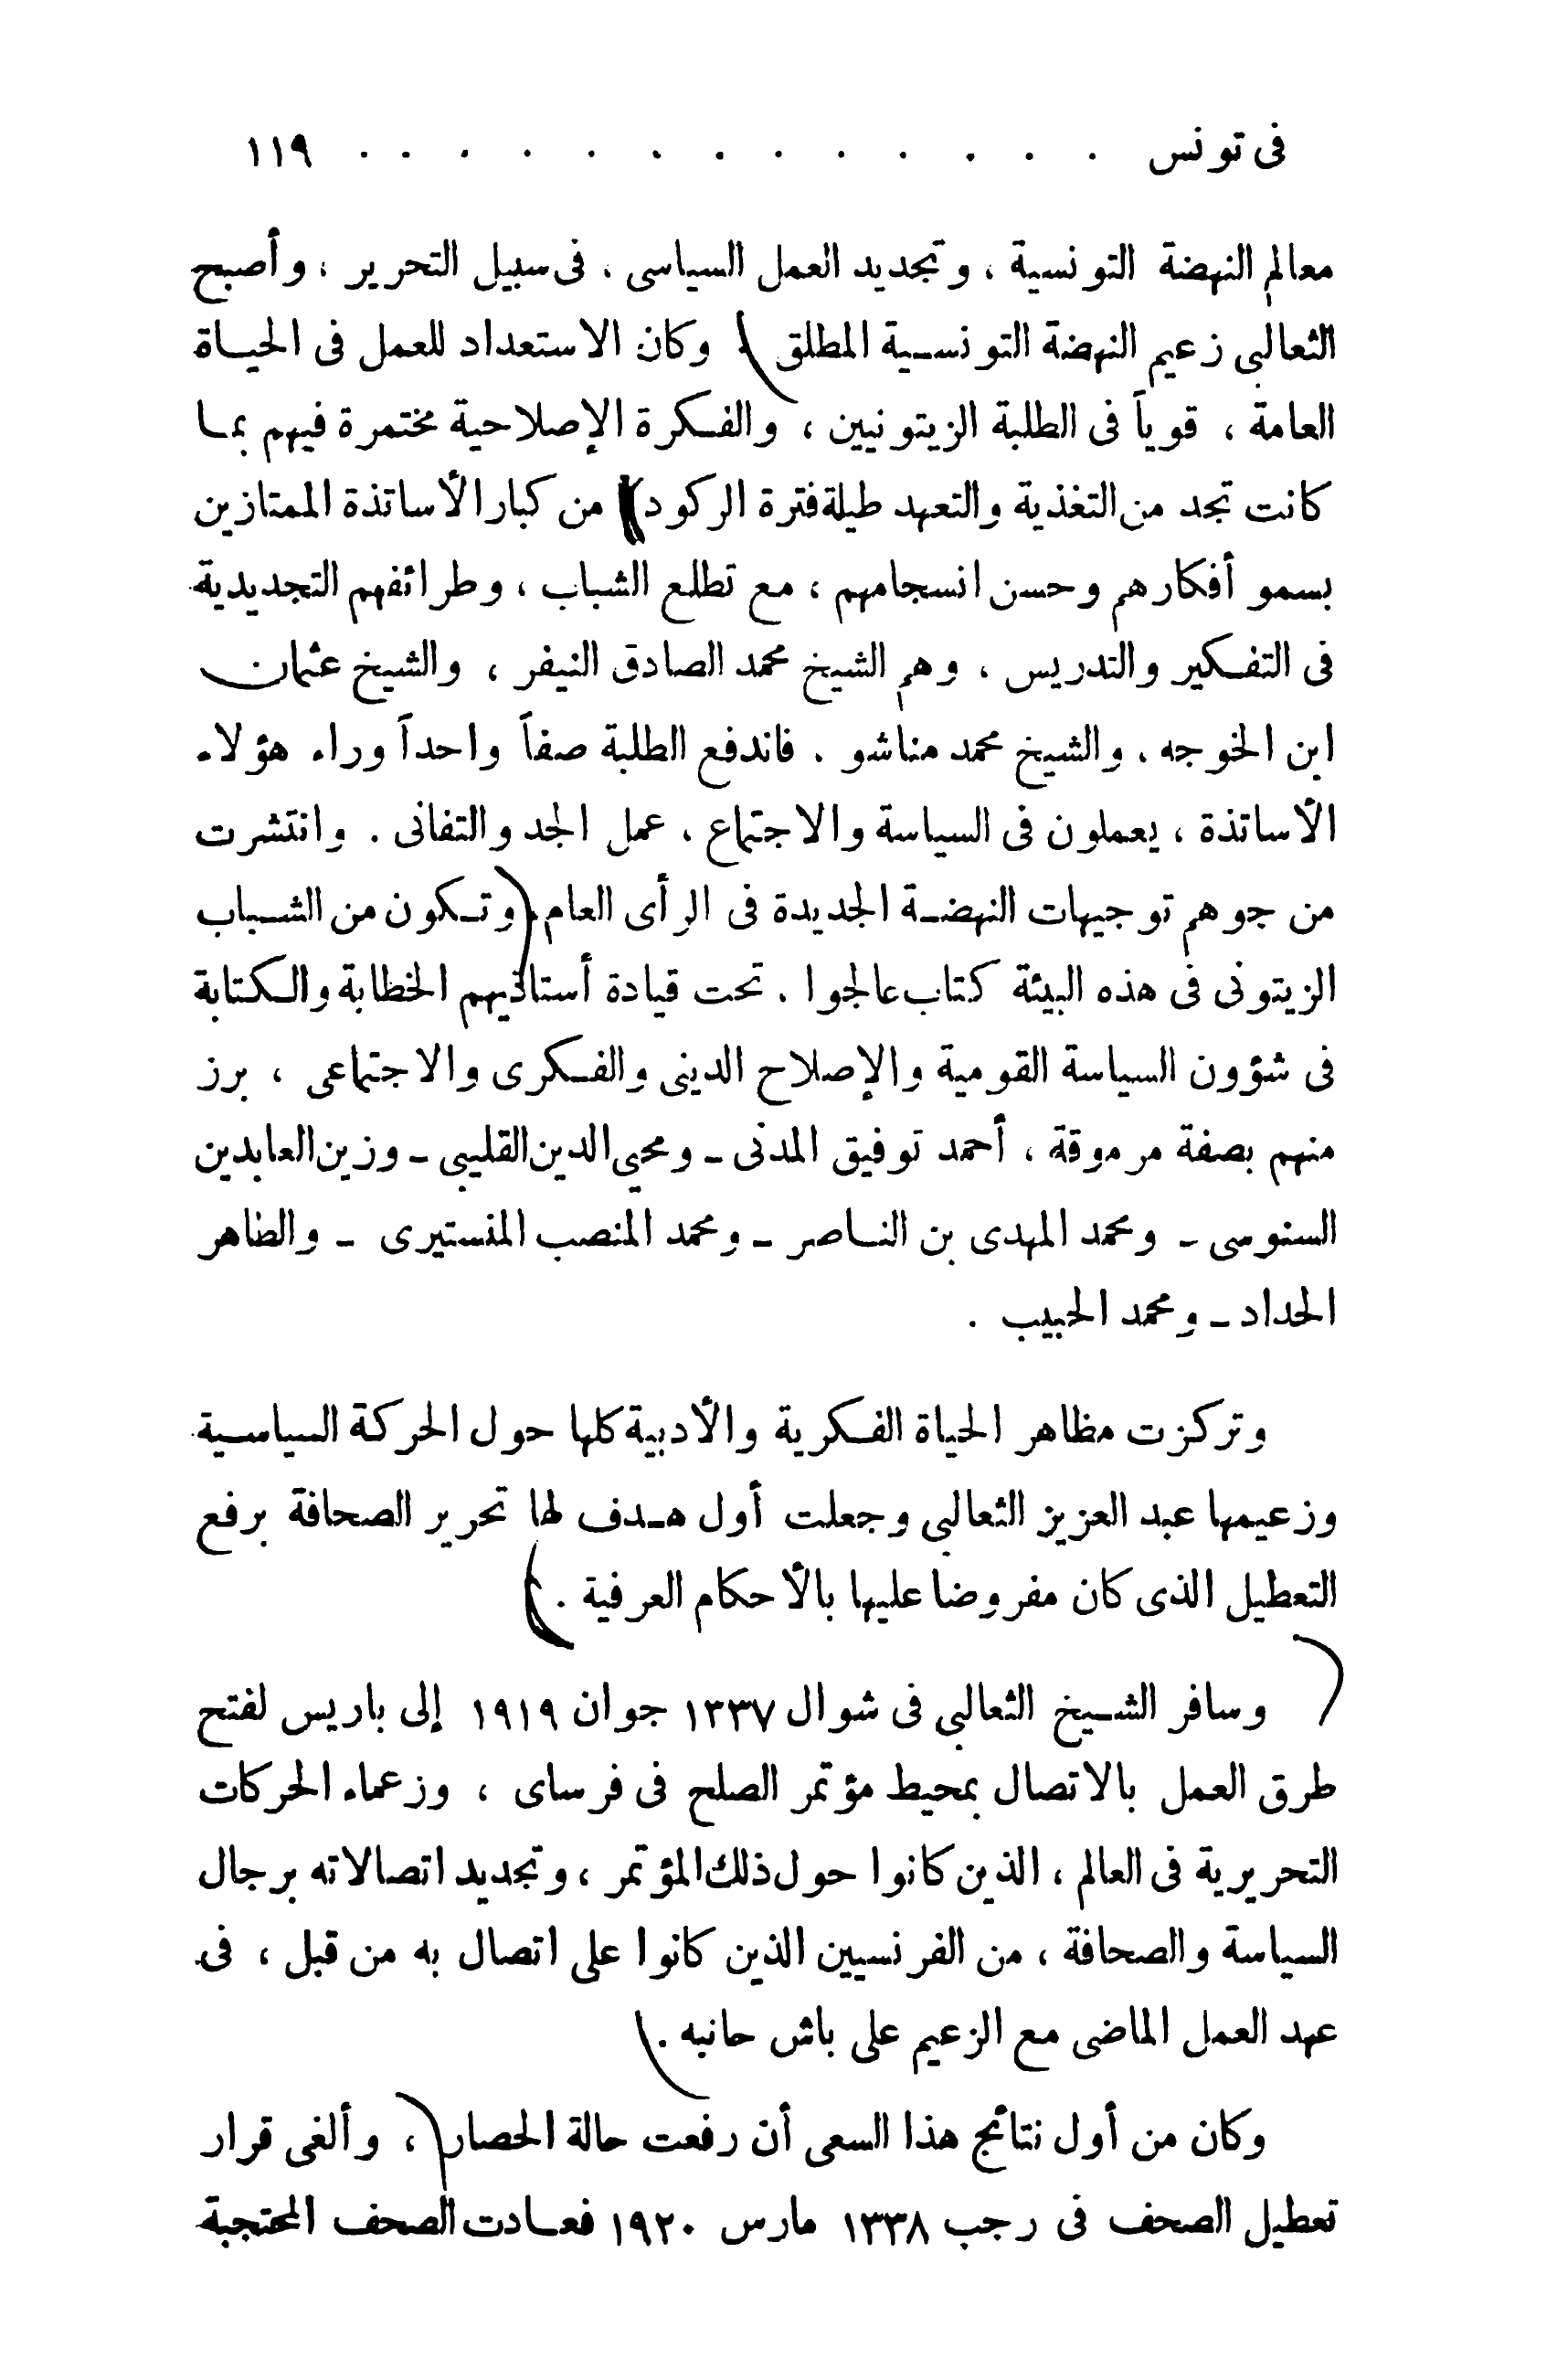 فى تونس . . . . . . . . . . . . . ١١٩
معالم النهضة التونسية ، وتجديد العمل السياسى ، فى سبيل التحرير ، وأصبح
الثعالبى زعيم النهضة التونسية المطلق . وكان الاستعداد للعمل فى الحياة
العامة ، قوياً فى الطلبة الزيتونيين ، والفكرة الإصلاحية مختمرة فيهم بما
كانت تجد من التغذية والتعهد طيلة فترة الركود من كبار الأساتذة الممتازين
بسمو أفكارهم وحسن انسجامهم ، مع تطلع الشباب ، وطرائفهم التجديدية
فى التفكير والتدريس ، وهم الشيخ محمد الصادق النيفر ، والشيخ عثمان
ابن الخوجه ، والشيخ محمد مناشو . فاندفع الطلبة صفاً واحداً وراء هؤلاء
الأساتذة ، يعملون فى السياسة والاجتماع ، عمل الجد والتفانى . وانتشرت
من جوهم توجيهات النهضة الجديدة فى الرأى العام (وتكون من الشباب
الزيتونى فى هذه البيئة كتاب عالجوا . تحت قيادة أستاذيهم الخطابة والكتابة
فى شؤون السياسة القومية والإصلاح الدينى والفكرى والاجتماعى ، برز
منهم بصفة مرموقة ، أحمد توفيق المدنى ـ ومحيى الدين القليبى ـ وزين العابدين
السنوسى ـ ومحمد المهدى بن الناصر ـ ومحمد المنصب المنستيرى ـ والطاهر
الحداد ـ ومحمد الحبيب .
وتركزت مظاهر الحياة الفكرية والأدبية كلها حول الحركة السياسية
وزعيمها عبد العزيز الثعالبى وجعلت أول هدف لها تحرير الصحافة برفع
التعطيل الذى كان مفروضا عليها بالأحكام العرفية .)
(وسافر الشيخ الثعالبى فى شوال ١٣٣٧ جوان ١٩١٩ إلى باريس لفتح
طرق العمل بالاتصال بمحيط مؤتمر الصلح فى فرساى ، وزعماء الحركات
التحريرية فى العالم ، الذين كانوا حول ذلك المؤتمر ، وتجديد اتصالاته برجال
السياسة والصحافة ، من الفرنسيين الذين كانوا على اتصال به من قبل ، فى
عهد العمل الماضى مع الزعيم على باش حانبه .)
وكان من أول نتائج هذا السعى أن رفعت حالة الحصار ، وألغى قرار
تعطيل الصحف فى رجب ١٣٣٨ مارس ١٩٢٠ فعادت الصحف المحتجبة